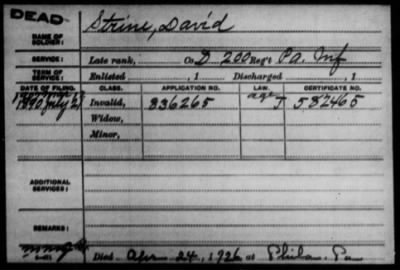 DEAD
NAME OF SOLDIER: Strine, David
SERVICE: Late rank, Co. D. 200 Reg't Pa. Inf
TERM OF SERVICE: Enlisted , 1 Discharged , 1
DATE OF FILING. CLASS. APPLICATION NO. LAW. CERTIFICATE NO.
1890 July 21 Invalid, 836265 age J 582465
Widow,
Minor,
ADDITIONAL SERVICES:
REMARKS:
Died Apr 24, 1926 at Phila. Pa